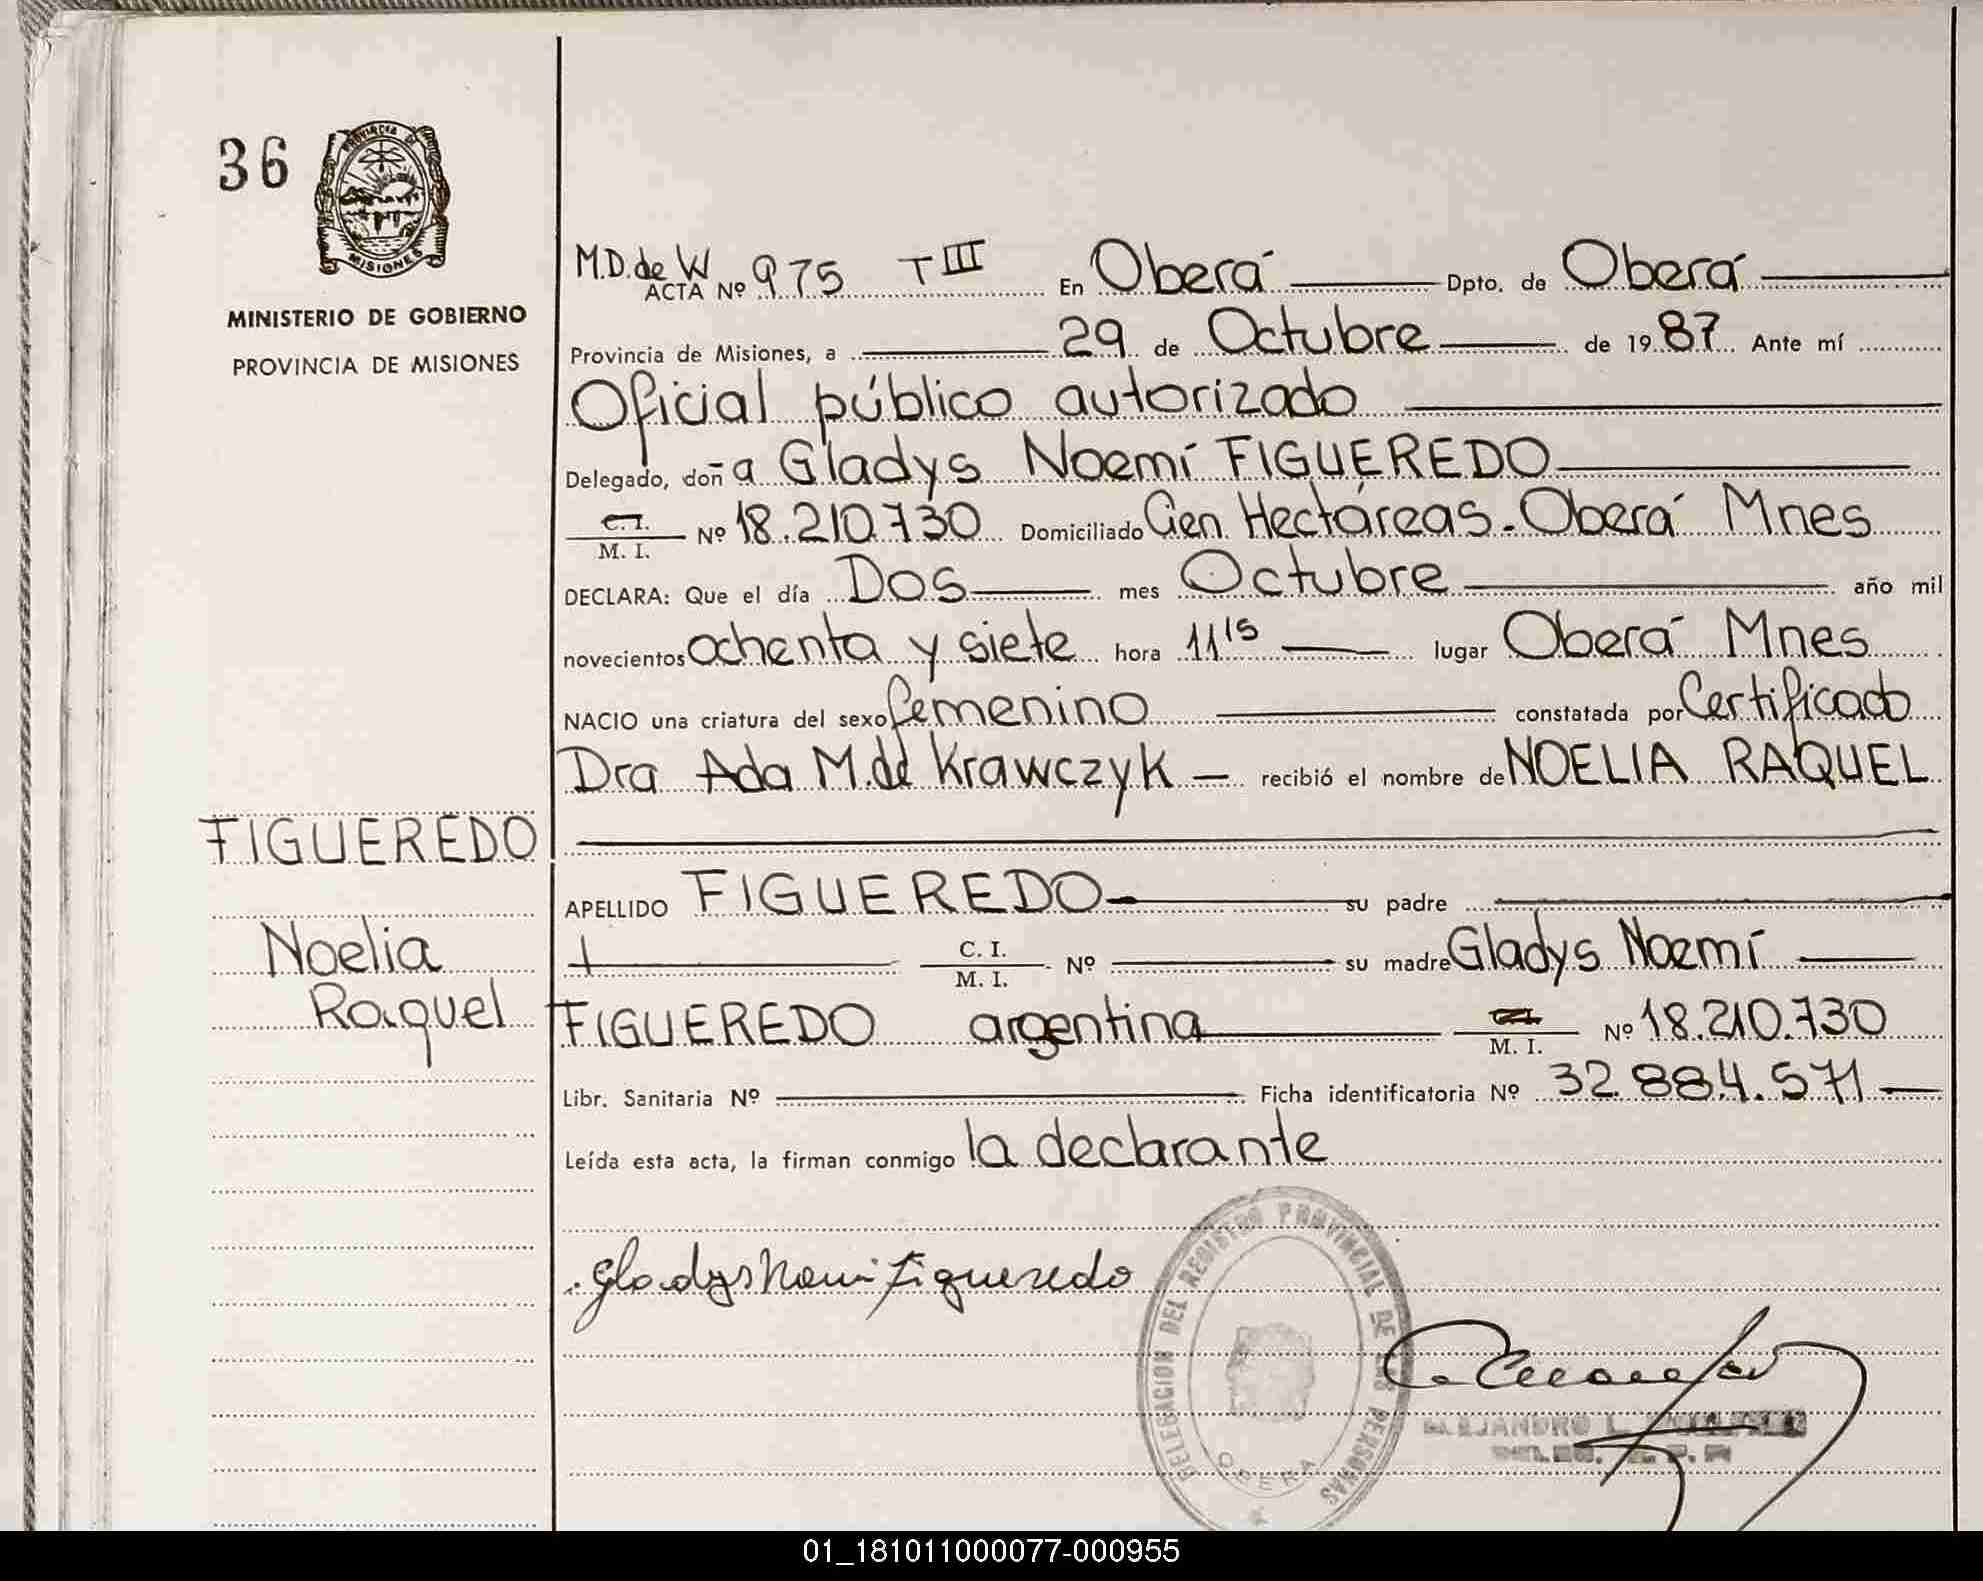 36
PROVINCIA DE
MISIONES
MINISTERIO DE GOBIERNO
PROVINCIA DE MISIONES
M.D. de W
ACTA Nº 975 T III En Oberá Dpto. de Oberá
Provincia de Misiones, a 29 de Octubre de 1987 Ante mí
Oficial público autorizado
Delegado, doña Gladys Noemí FIGUEREDO
C.I.
M. I. Nº 18.210.730 Domiciliado Cien Hectáreas - Oberá Mnes
DECLARA: Que el día Dos mes Octubre año mil
novecientos ochenta y siete hora 11 15 lugar Oberá Mnes
NACIO una criatura del sexo femenino constatada por Certificado
Dra Ada M. de Krawczyk recibió el nombre de NOELIA RAQUEL
FIGUEREDO
Noelia
Raquel
APELLIDO FIGUEREDO su padre
C. I.
M. I. Nº su madre Gladys Noemí
FIGUEREDO argentina M. I. Nº 18.210.730
Libr. Sanitaria Nº Ficha identificatoria Nº 32.884.571
Leída esta acta, la firman conmigo la declarante
Gladys Noemi Figueredo
DELEGACION DEL REGISTRO PROVINCIAL DE LAS PERSONAS
OBERA
ALEJANDRO L.
01_181011000077-000955